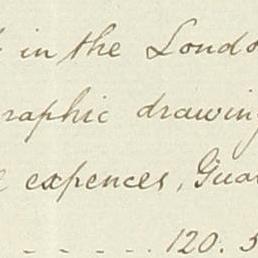 in the Londo
raphic drawing
expences, Gua
- - - - . 120. 5